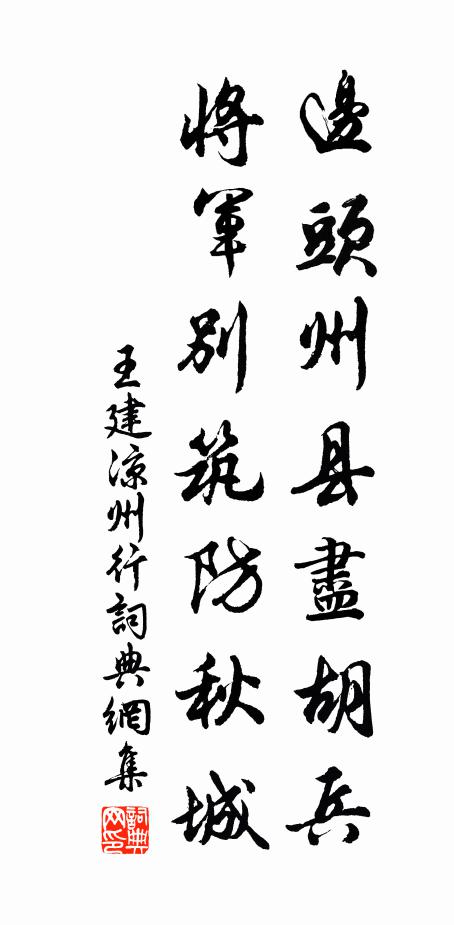 邊頭州县盡胡兵
將軍别筑防秋城
王建凉州行詞典網集
詞典网印